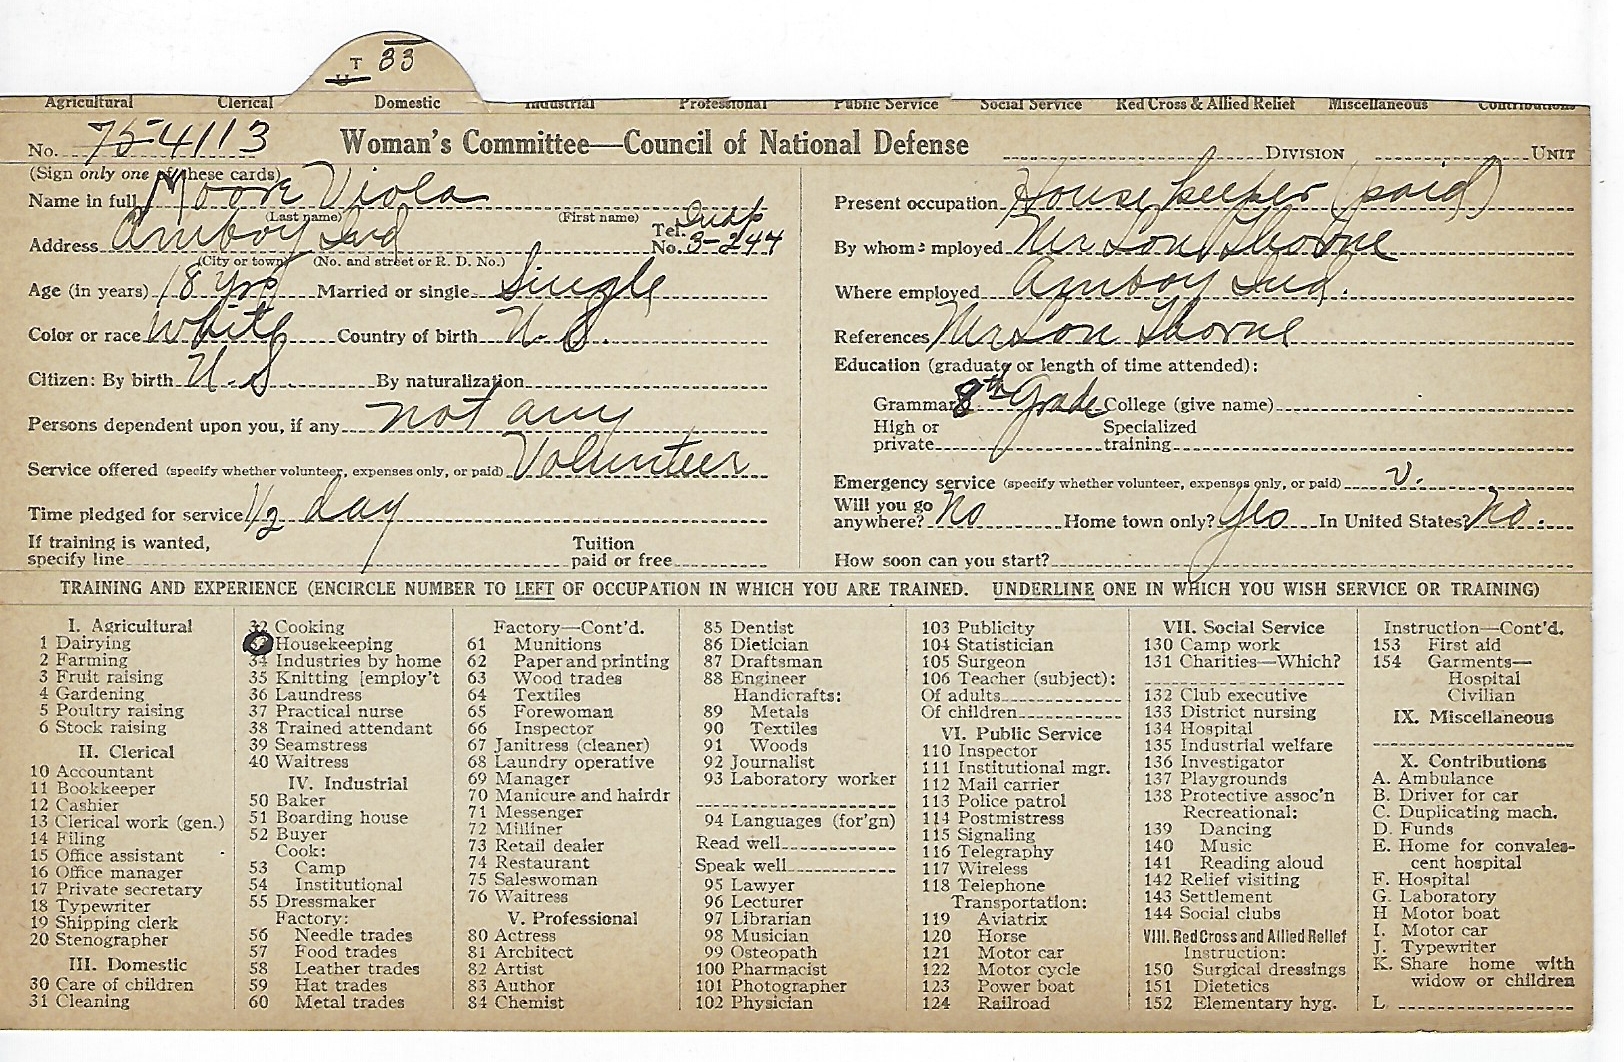 T 33
U
Agricultural Clerical Domestic Industrial Professional Public Service Social Service Red Cross & Allied Relief Miscellaneous Contributions
No. 75-4113 Woman's Committee—Council of National Defense DIVISION UNIT
(Sign only one of these cards)
Name in full Moore Viola
(Last name) (First name)
Address Amboy Ind Tel. No. 3-244
(City or town) (No. and street or R. D. No.)
Age (in years) 18 yrs Married or single Single
Color or race White Country of birth U. S.
Citizen: By birth U. S. By naturalization
Persons dependent upon you, if any not any
Service offered (specify whether volunteer, expenses only, or paid) Volunteer
Time pledged for service 1/2 day
If training is wanted, specify line Tuition paid or free
Present occupation House keeper (paid)
By whom employed Mr Lon Thorne
Where employed Amboy Ind.
References Mr Lon Thorne
Education (graduate or length of time attended):
Grammar 8th Grade College (give name)
High or private Specialized training
Emergency service (specify whether volunteer, expenses only, or paid) v.
Will you go anywhere? No Home town only? Yes In United States? No.
How soon can you start?
TRAINING AND EXPERIENCE (ENCIRCLE NUMBER TO LEFT OF OCCUPATION IN WHICH YOU ARE TRAINED. UNDERLINE ONE IN WHICH YOU WISH SERVICE OR TRAINING)
I. Agricultural
1 Dairying
2 Farming
3 Fruit raising
4 Gardening
5 Poultry raising
6 Stock raising
II. Clerical
10 Accountant
11 Bookkeeper
12 Cashier
13 Clerical work (gen.)
14 Filing
15 Office assistant
16 Office manager
17 Private secretary
18 Typewriter
19 Shipping clerk
20 Stenographer
III. Domestic
30 Care of children
31 Cleaning
32 Cooking
Housekeeping
34 Industries by home
35 Knitting [employ't
36 Laundress
37 Practical nurse
38 Trained attendant
39 Seamstress
40 Waitress
IV. Industrial
50 Baker
51 Boarding house
52 Buyer
Cook:
53 Camp
54 Institutional
55 Dressmaker
Factory:
56 Needle trades
57 Food trades
58 Leather trades
59 Hat trades
60 Metal trades
Factory—Cont'd.
61 Munitions
62 Paper and printing
63 Wood trades
64 Textiles
65 Forewoman
66 Inspector
67 Janitress (cleaner)
68 Laundry operative
69 Manager
70 Manicure and hairdr
71 Messenger
72 Milliner
73 Retail dealer
74 Restaurant
75 Saleswoman
76 Waitress
V. Professional
80 Actress
81 Architect
82 Artist
83 Author
84 Chemist
85 Dentist
86 Dietician
87 Draftsman
88 Engineer
Handicrafts:
89 Metals
90 Textiles
91 Woods
92 Journalist
93 Laboratory worker
94 Languages (for'gn)
Read well
Speak well
95 Lawyer
96 Lecturer
97 Librarian
98 Musician
99 Osteopath
100 Pharmacist
101 Photographer
102 Physician
103 Publicity
104 Statistician
105 Surgeon
106 Teacher (subject):
Of adults
Of children
VI. Public Service
110 Inspector
111 Institutional mgr.
112 Mail carrier
113 Police patrol
114 Postmistress
115 Signaling
116 Telegraphy
117 Wireless
118 Telephone
Transportation:
119 Aviatrix
120 Horse
121 Motor car
122 Motor cycle
123 Power boat
124 Railroad
VII. Social Service
130 Camp work
131 Charities—Which?
132 Club executive
133 District nursing
134 Hospital
135 Industrial welfare
136 Investigator
137 Playgrounds
138 Protective assoc'n
Recreational:
139 Dancing
140 Music
141 Reading aloud
142 Relief visiting
143 Settlement
144 Social clubs
VIII. Red Cross and Allied Relief
Instruction:
150 Surgical dressings
151 Dietetics
152 Elementary hyg.
Instruction—Cont'd.
153 First aid
154 Garments—
Hospital
Civilian
IX. Miscellaneous
X. Contributions
A. Ambulance
B. Driver for car
C. Duplicating mach.
D. Funds
E. Home for convales-
cent hospital
F. Hospital
G. Laboratory
H Motor boat
I. Motor car
J. Typewriter
K. Share home with
widow or children
L